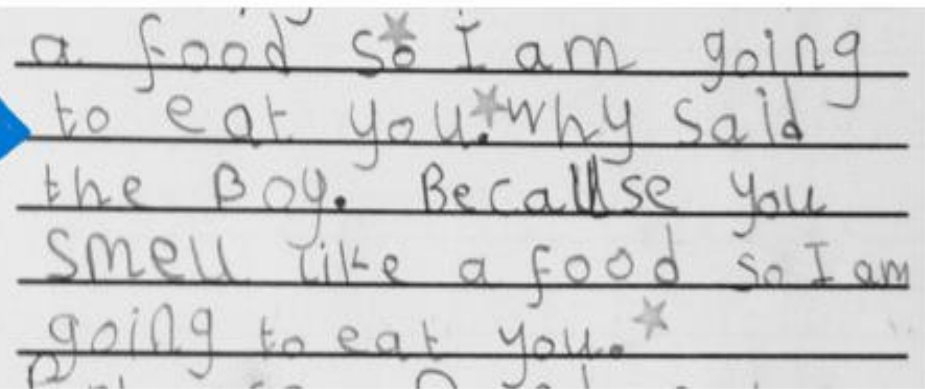 a food so I am going
to eat you. why said
the Boy. Because you
smell like a food so I am
going to eat you.